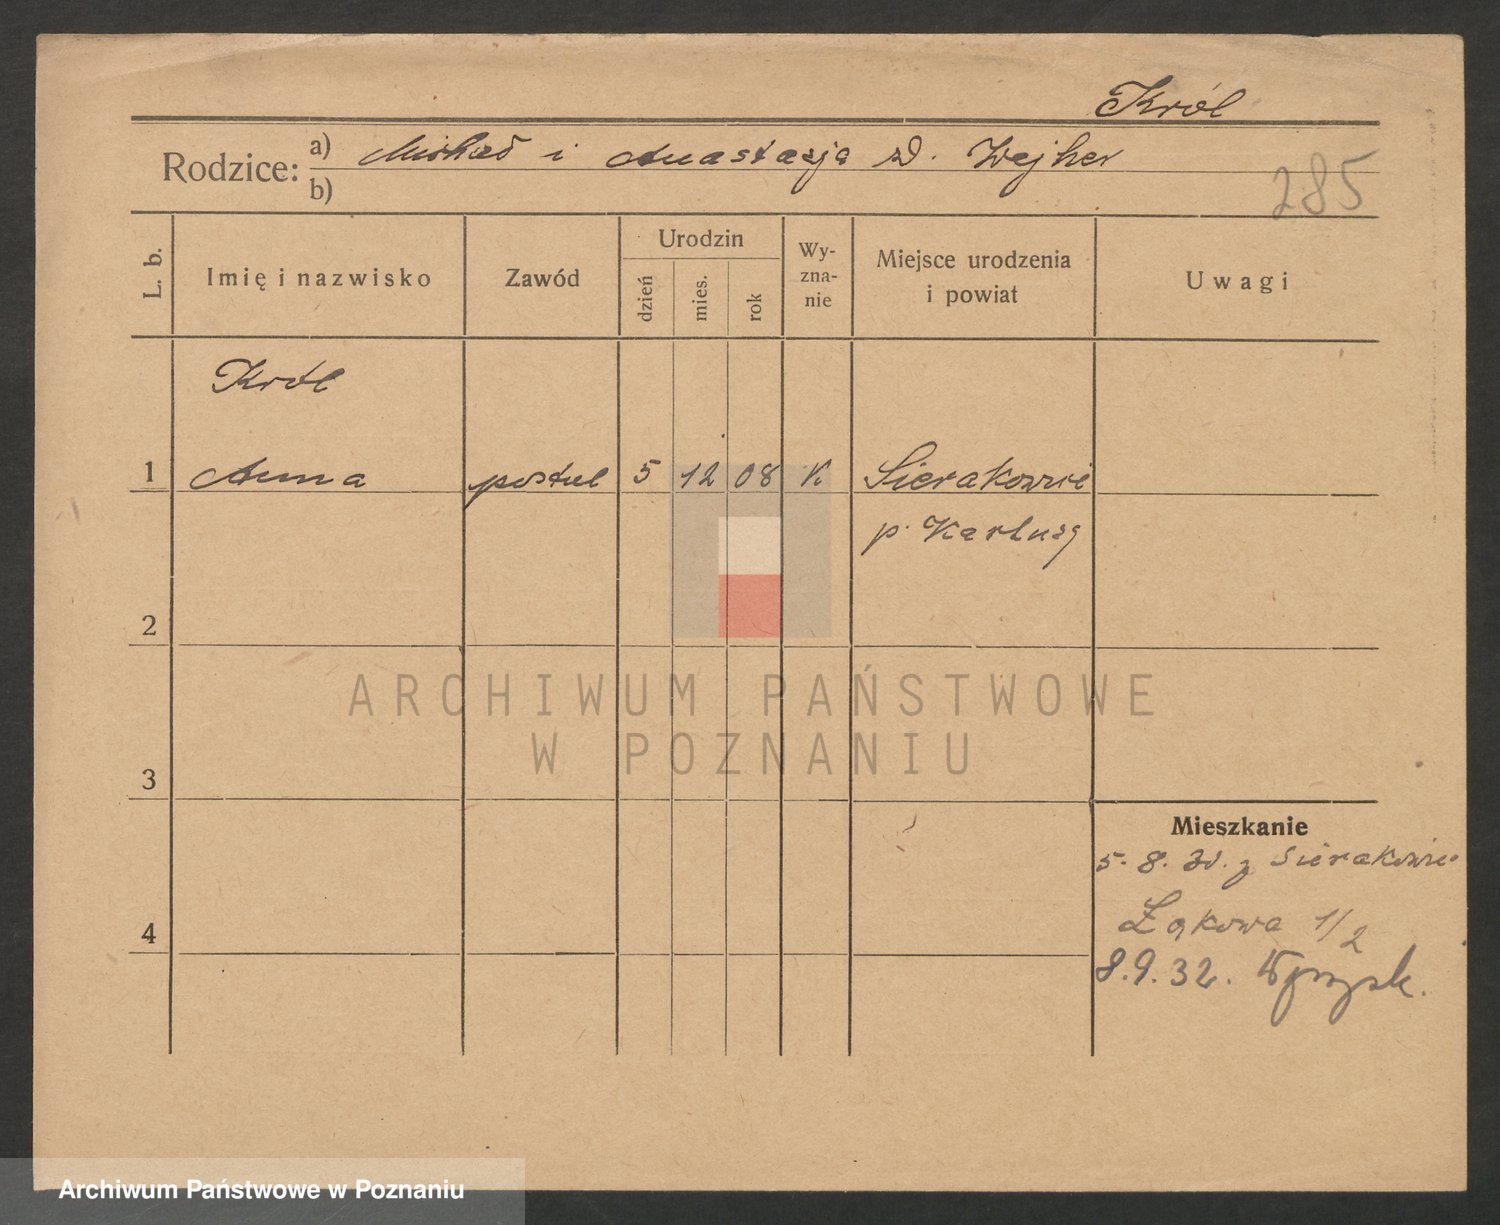 Król
Rodzice: a) Michał i Anastazja d. Wejher
b)
285
L. b.
Imię i nazwisko
Zawód
Urodzin
dzień
mies.
rok
Wy-
zna-
nie
Miejsce urodzenia
i powiat
Uwagi
Król
1 Anna postul 5 12 08 K Sierakowice
p. Kartuzy
2
3
4
Mieszkanie
5. 8. 30. z Sierakowic
Łąkowa 1/2
8.9.32.
ARCHIWUM PAŃSTWOWE
W POZNANIU
Archiwum Państwowe w Poznaniu